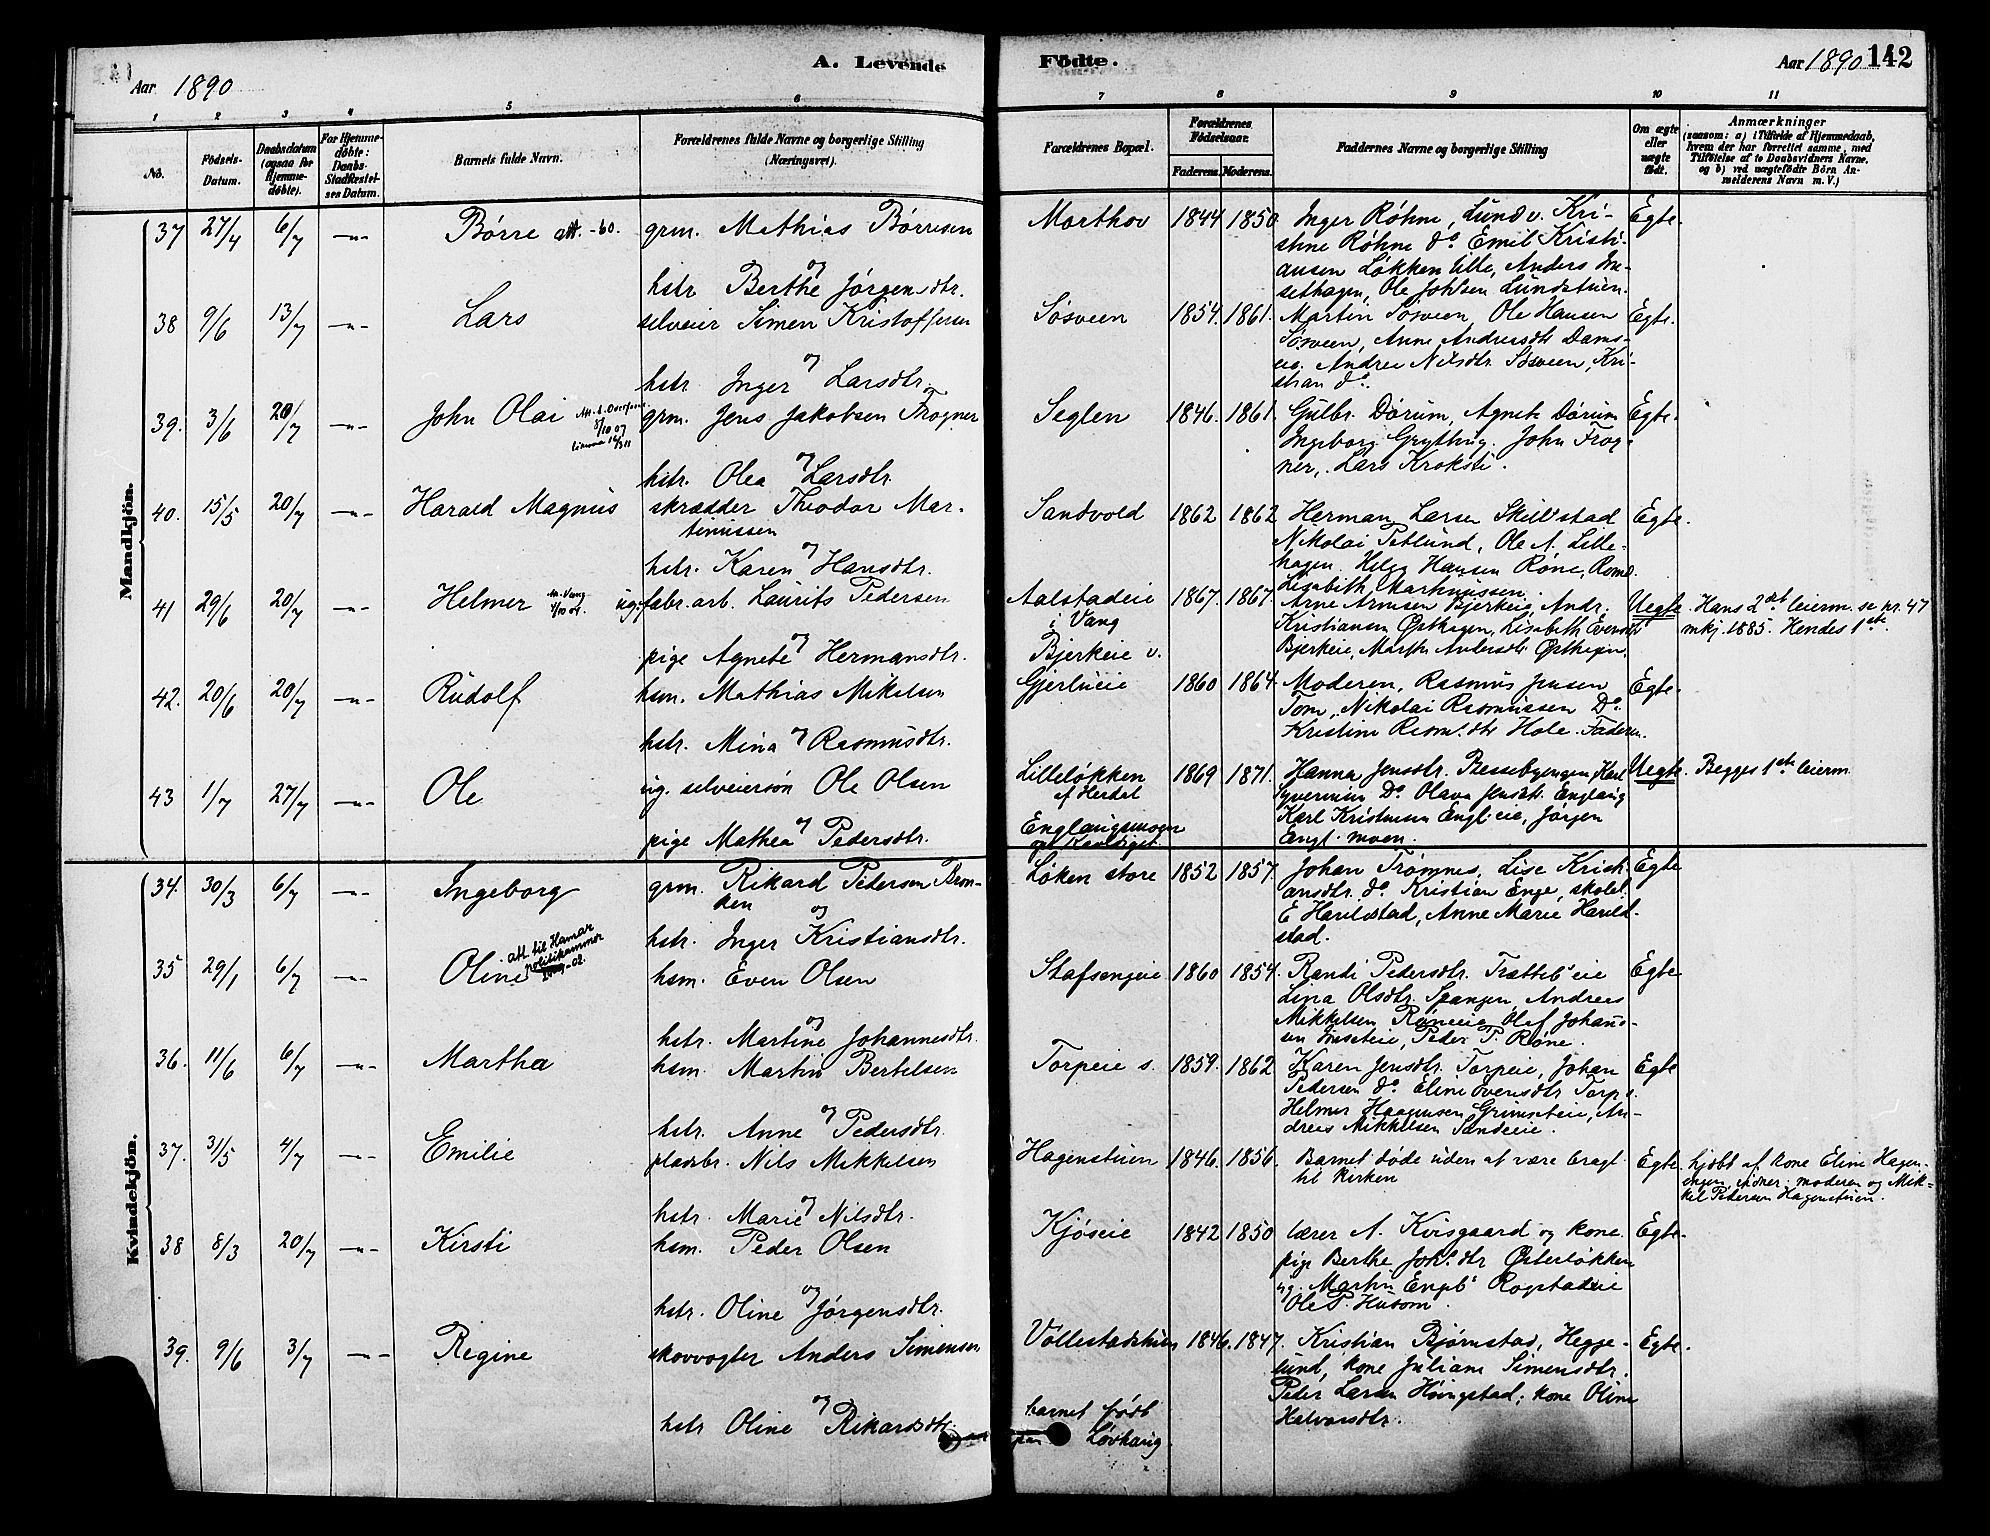 Aar 1890
A. Levende
Fødte.
Aar 1890
142
1 2 3 4 5 6 7 8 9 10 11
No.
Fødsels-
Datum.
Daabsdatum
(ogsaa for
Hjemme-
døbte).
For Hjemme-
døbte:
Daabs-
Stadfæstel-
ses Datum.
Barnets fulde Navn.
Forældrenes fulde Navne og borgerlige Stilling
(Næringsvei).
Forældrenes Bopæl.
Forældrenes
Fødselsaar.
Faderens. Moderens.
Faddernes Navne og borgerlige Stilling
Om ægte
eller
uægte
født.
Anmærkninger
(saasom: a) i Tilfælde af Hjemmedaab,
hvem der har forrettet samme, med
Tilføielse af to Daabsvidners Navne,
og b) ved uægtefødte Børn An-
melderens Navn m. V.)
Mandkjön.
37 27/4 6/7 -"- Børre att. -60. grm. Mathias Børresen
og
hstr. Berthe Jørgensdtr.
Morthov 1844 1850 Inger Røhne, Lund v. Kri-
stine Røhne do Emil Kristi-
ansen Løkken lille, Anders
Ole Johsen Lundstuen.
Egte.
38 9/6 13/7 -"- Lars selveier Simen Kristoffersen
og
hstr. Inger Larsdtr.
Søsveen 1854. 1861. Martin Søsveen, Ole Hansen
Søsveen, Anne Andreasdtr Dams-
eie. Andrea Nilsdtr Søsveen, Kri-
stian do.
Egte.
39. 3/6 20/7 -"- John Olai
8/10 07
grm. Jens Jakobsen Frogner
og
hstr. Olea Larsdtr.
Seglen 1846. 1861. Gulbr. Dørum, Agnete Dørum
Ingeborg Grytting. John Frog-
ner, Lars Kroksti.
Egte.
40. 15/5 20/7 -"- Harald Magnus skrædder Theodor Mar-
tinussen
og
hstr. Karen Hansdtr.
Sandvold 1862 1862 Herman Larsen Skillstad
Nikolai Petlund, Ole A. Lille-
hagen. Helga Hansen Røne,
Lisabeth Martinussen.
Egte.
41 29/6 20/7 -"- Helmer ug. fabr. arb. Laurits Pedersen
og
pige Agnete Hermansdtr.
Aalstadeie
i Vang
Bjerkeie v.
1867. 1867. Arne Arnesen Bjerkeie, Andr.
Kristiansen Østhagen, Lisabeth Evensdtr
Bjerkeie, Marthe Andersdtr Østhagen.
Uegte. Hans 2det leierm. se nr. 47
mkj. 1885. Hendes 1ste.
42. 20/6 20/7 -"- Rudolf hsm. Mathias Mikelsen
og
hstr. Mina Rasmusdtr.
Gjerlueie 1860 1864. Moderen, Rasmus Jensen
Tom, Nikolai Rasmussen Do.
Kristine Rasm.dtr Hole. Faderen.
Egte.
43 1/7 27/7 -"- Ole ug. selveiersøn Ole Olsen
og
pige Mathea Pedersdtr.
Lilleløkken
af Herdal
Englaugsmoen
1869 1871. Hanna Jensdtr. Bessebyengen, Karl
Syversen Do. Olava Jensdtr. Englaug
Karl Kristiansen Engl.eie, Jørgen
Engl. moen.
Uegte. Begges 1ste leierm.
Kvindekjön.
34. 30/3 6/7 -"- Ingeborg grm. Rikard Pedersen Bron-
ken og
hstr. Inger Kristiansdtr.
Løken store 1852 1857. Johan Trømnes, Lise Kristi-
ansdtr. do. Kristian Enge, skolel.
E Harildstad, Anne Marie Harild-
stad.
Egte
35 29/1 6/7 -"- Oline att til Hamar
politikammer
-02.
hsm. Even Olsen
og
hstr. Martine Johannesdtr.
Stafsengeie 1860 1854. Randi Pedersdtr. Trætteb eie
Lina Olsdtr. Spangen, Andreas
Mikkelsen Røneeie Olaf Johans-
en, Peder P. Røne.
Egte
36. 11/6 6/7 -"- Martha hsm. Martin Bertelsen
og
hstr. Anne Pedersdtr.
Torpeie s. 1859. 1862 Karen Jensdtr. Torpeie, Johan
Pedersen do. Eline Evensdtr Torp s.
Helmer Haagensen Grimseteie, An-
dreas Mikkelsen Sandeie.
Egte
37. 31/5 4/7 -"- Emilie pladsbr. Nils Mikkelsen
og
hstr. Marie Nilsdtr.
Hagenstuen 1846. 1856. Barnet døde uden at være bragt
til kirken
Egte. hjdbt af kone Eline Hagen-
engen, vidner: moderen og Mik-
kel Pedersen Hagenstuen.
38 8/3 20/7 -"- Kirsti hsm. Peder Olsen
og
hstr. Oline Jørgensdtr.
Kjøseie 1842 1850 lærer A. Kvisgaard og kone.
pige Berthe Joh.dtr Østerløkken
ug. Martin Engb. Rogstadeie
Ole P. Husom.
Egte.
39. 9/6 3/7 -"- Regine skovvogter Anders Simensen
og
hstr Oline Rikardsdtr.
Vollestadstuen 1846. 1847. Kristian Bjørnstad, Hegge-
lund, kone Juliane Simensdtr.
Peder Larsen Høingstad, kone Oline
Halvorsdtr.
Egte.
barnet født
paa Løvhaug